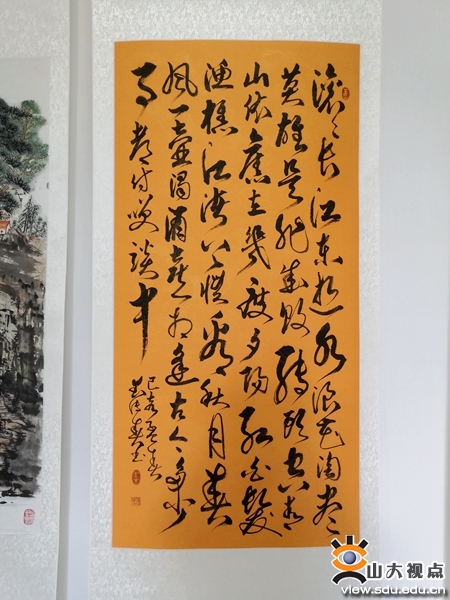 滚滚长江東逝水浪花淘尽
英雄是非成败转头空青
山依舊在幾度夕阳红白髮
渔樵江渚上惯看秋月春
风一壶濁酒喜相逢古今多少
事都付笑谈中
己亥孟春
山大视点
view.sdu.edu.cn